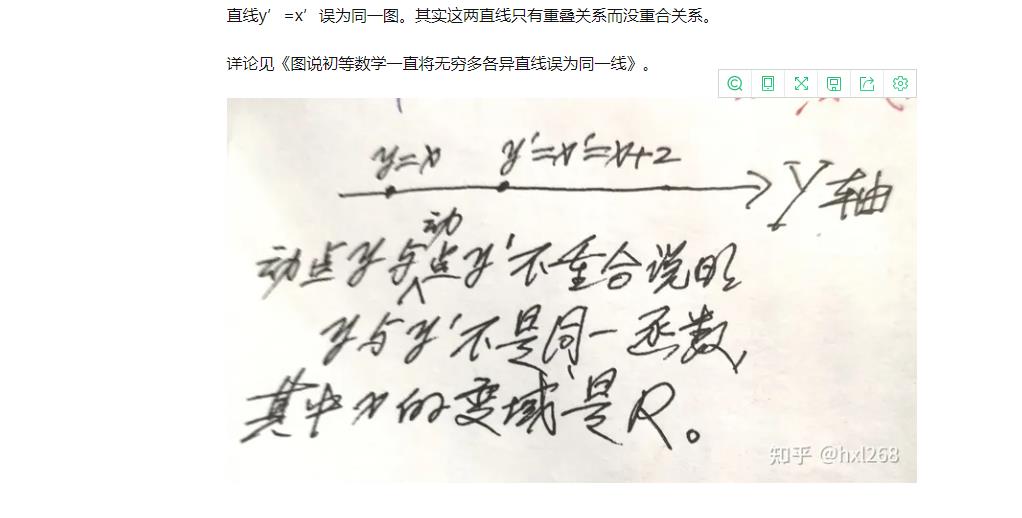 直线y′=x′误为同一图。其实这两直线只有重叠关系而没重合关系。
详论见《图说初等数学一直将无穷多各异直线误为同一线》。
y=x y′=x′=x+2
Y轴
动点y与动点y′不重合说明
y与y′不是同一函数,
其中x的变域是R。
知乎 @hxl268